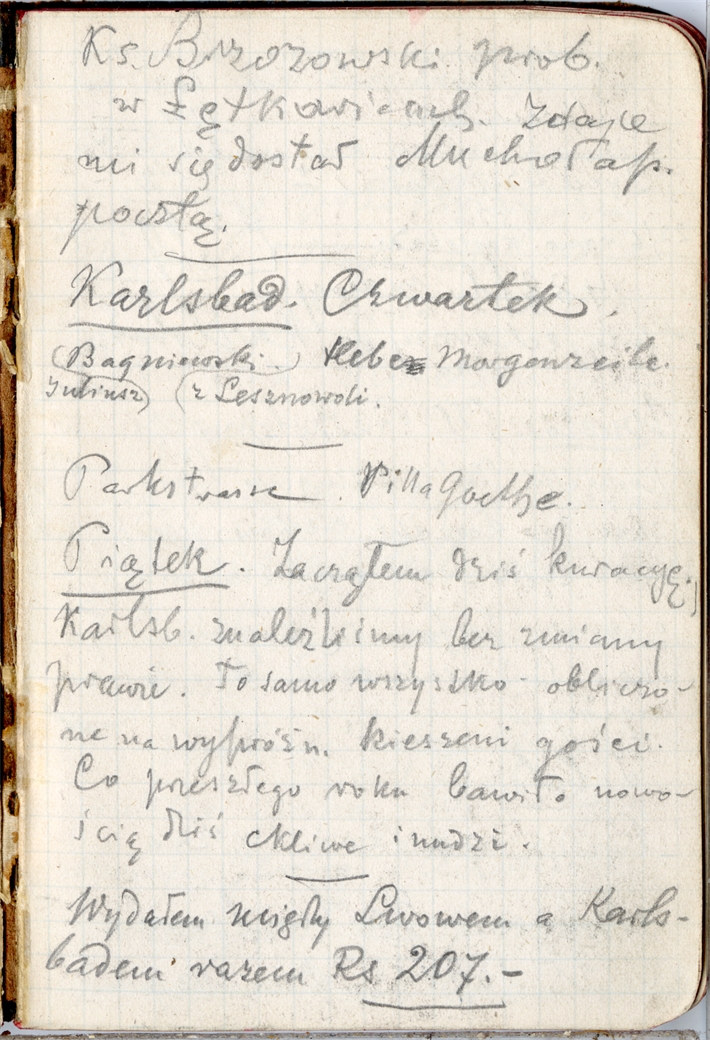 Ks. Brzozowski. prob.
w Łętkowicach. Zdaje
mi się dostał Muchołap.
pocztą.
Karlsbad. Czwartek.
(Bagniewski.) Morgenzeile.
Juliusz) (z Lesznowoli.
Parkstrasse. Villa Goethe.
Piątek. Zacząłem dziś kuracyę;
Karlsb. znaleźliśmy bez zmiany
prawie. To samo wszystko - obliczo-
ne na wypróżn. kieszeni gości.
Co przeszłego roku bawiło nowo-
ścią dziś ckliwe i nudzi.
Wydałem między Lwowem a Karls-
badem razem Rs 207.-